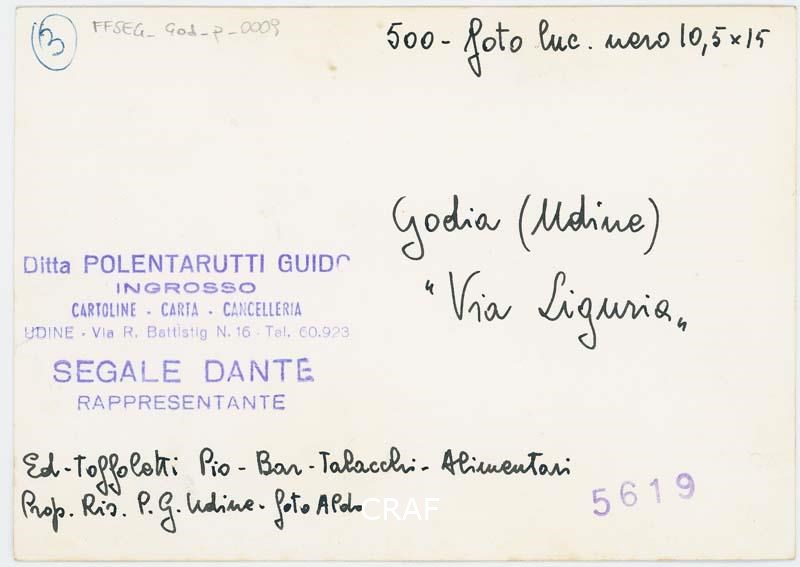 3
FFSEG_God_p_0009
500 - foto luc. nero 10,5x15
Godia (Udine)
"Via Liguria„
Ditta POLENTARUTTI GUIDO
INGROSSO
CARTOLINE - CARTA - CANCELLERIA
UDINE - Via R. Battistig N. 16 - Tel. 60.923
SEGALE DANTE
RAPPRESENTANTE
Ed - Toffoletti Pio - Bar - Tabacchi - Alimentari
Prop. Ris. P. G. Udine - foto Aldo
CRAF
5619